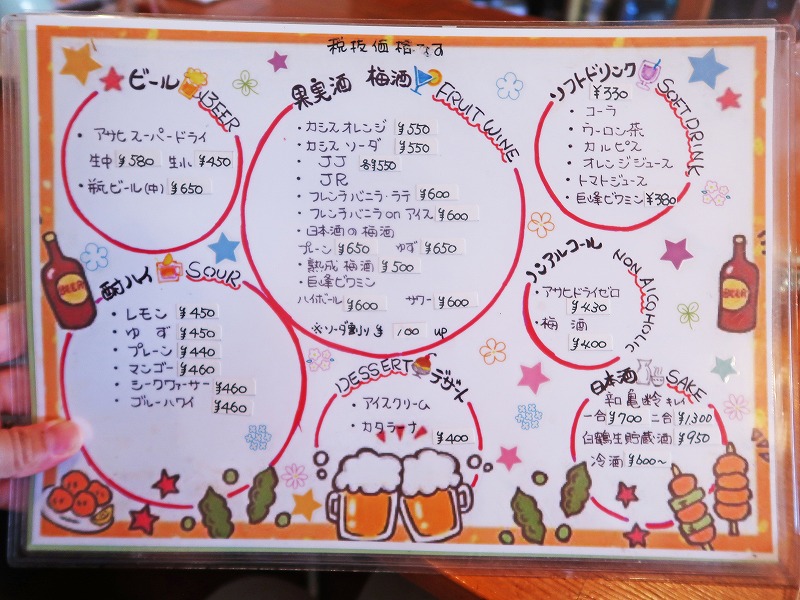 税抜価格です
ビール BEER
・アサヒスーパードライ
生中 ¥580 生小 ¥450
・瓶ビール(中) ¥650
果実酒 梅酒 FRUIT WINE
・カシスオレンジ ¥550
・カシスソーダ ¥550
・JJ 各¥550
・JR
・フレンチバニラ・ラテ ¥600
・フレンチバニラ on アイス ¥600
・日本酒の梅酒
プレーン ¥650 ゆず ¥650
・熟成梅酒 ¥500
・巨峰ビワミン
ハイボール ¥600 サワー ¥600
※ソーダ割り ¥100 up
ソフトドリンク SOFT DRINK
¥330
・コーラ
・ウーロン茶
・カルピス
・オレンジジュース
・トマトジュース
・巨峰ビワミン ¥380
酎ハイ SOUR
・レモン ¥450
・ゆず ¥450
・プレーン ¥440
・マンゴー ¥460
・シークヮーサー ¥460
・ブルーハワイ ¥460
ノンアルコール NON ALCOHOLIC
・アサヒドライゼロ
¥430
・梅酒
¥400
DESSERT デザート
・アイスクリーム
・カタラーナ ¥400
日本酒 SAKE
亀齢
一合 ¥700 二合 ¥1,300
白鶴生貯蔵酒 ¥950
冷酒 ¥600~
BEER
BEER